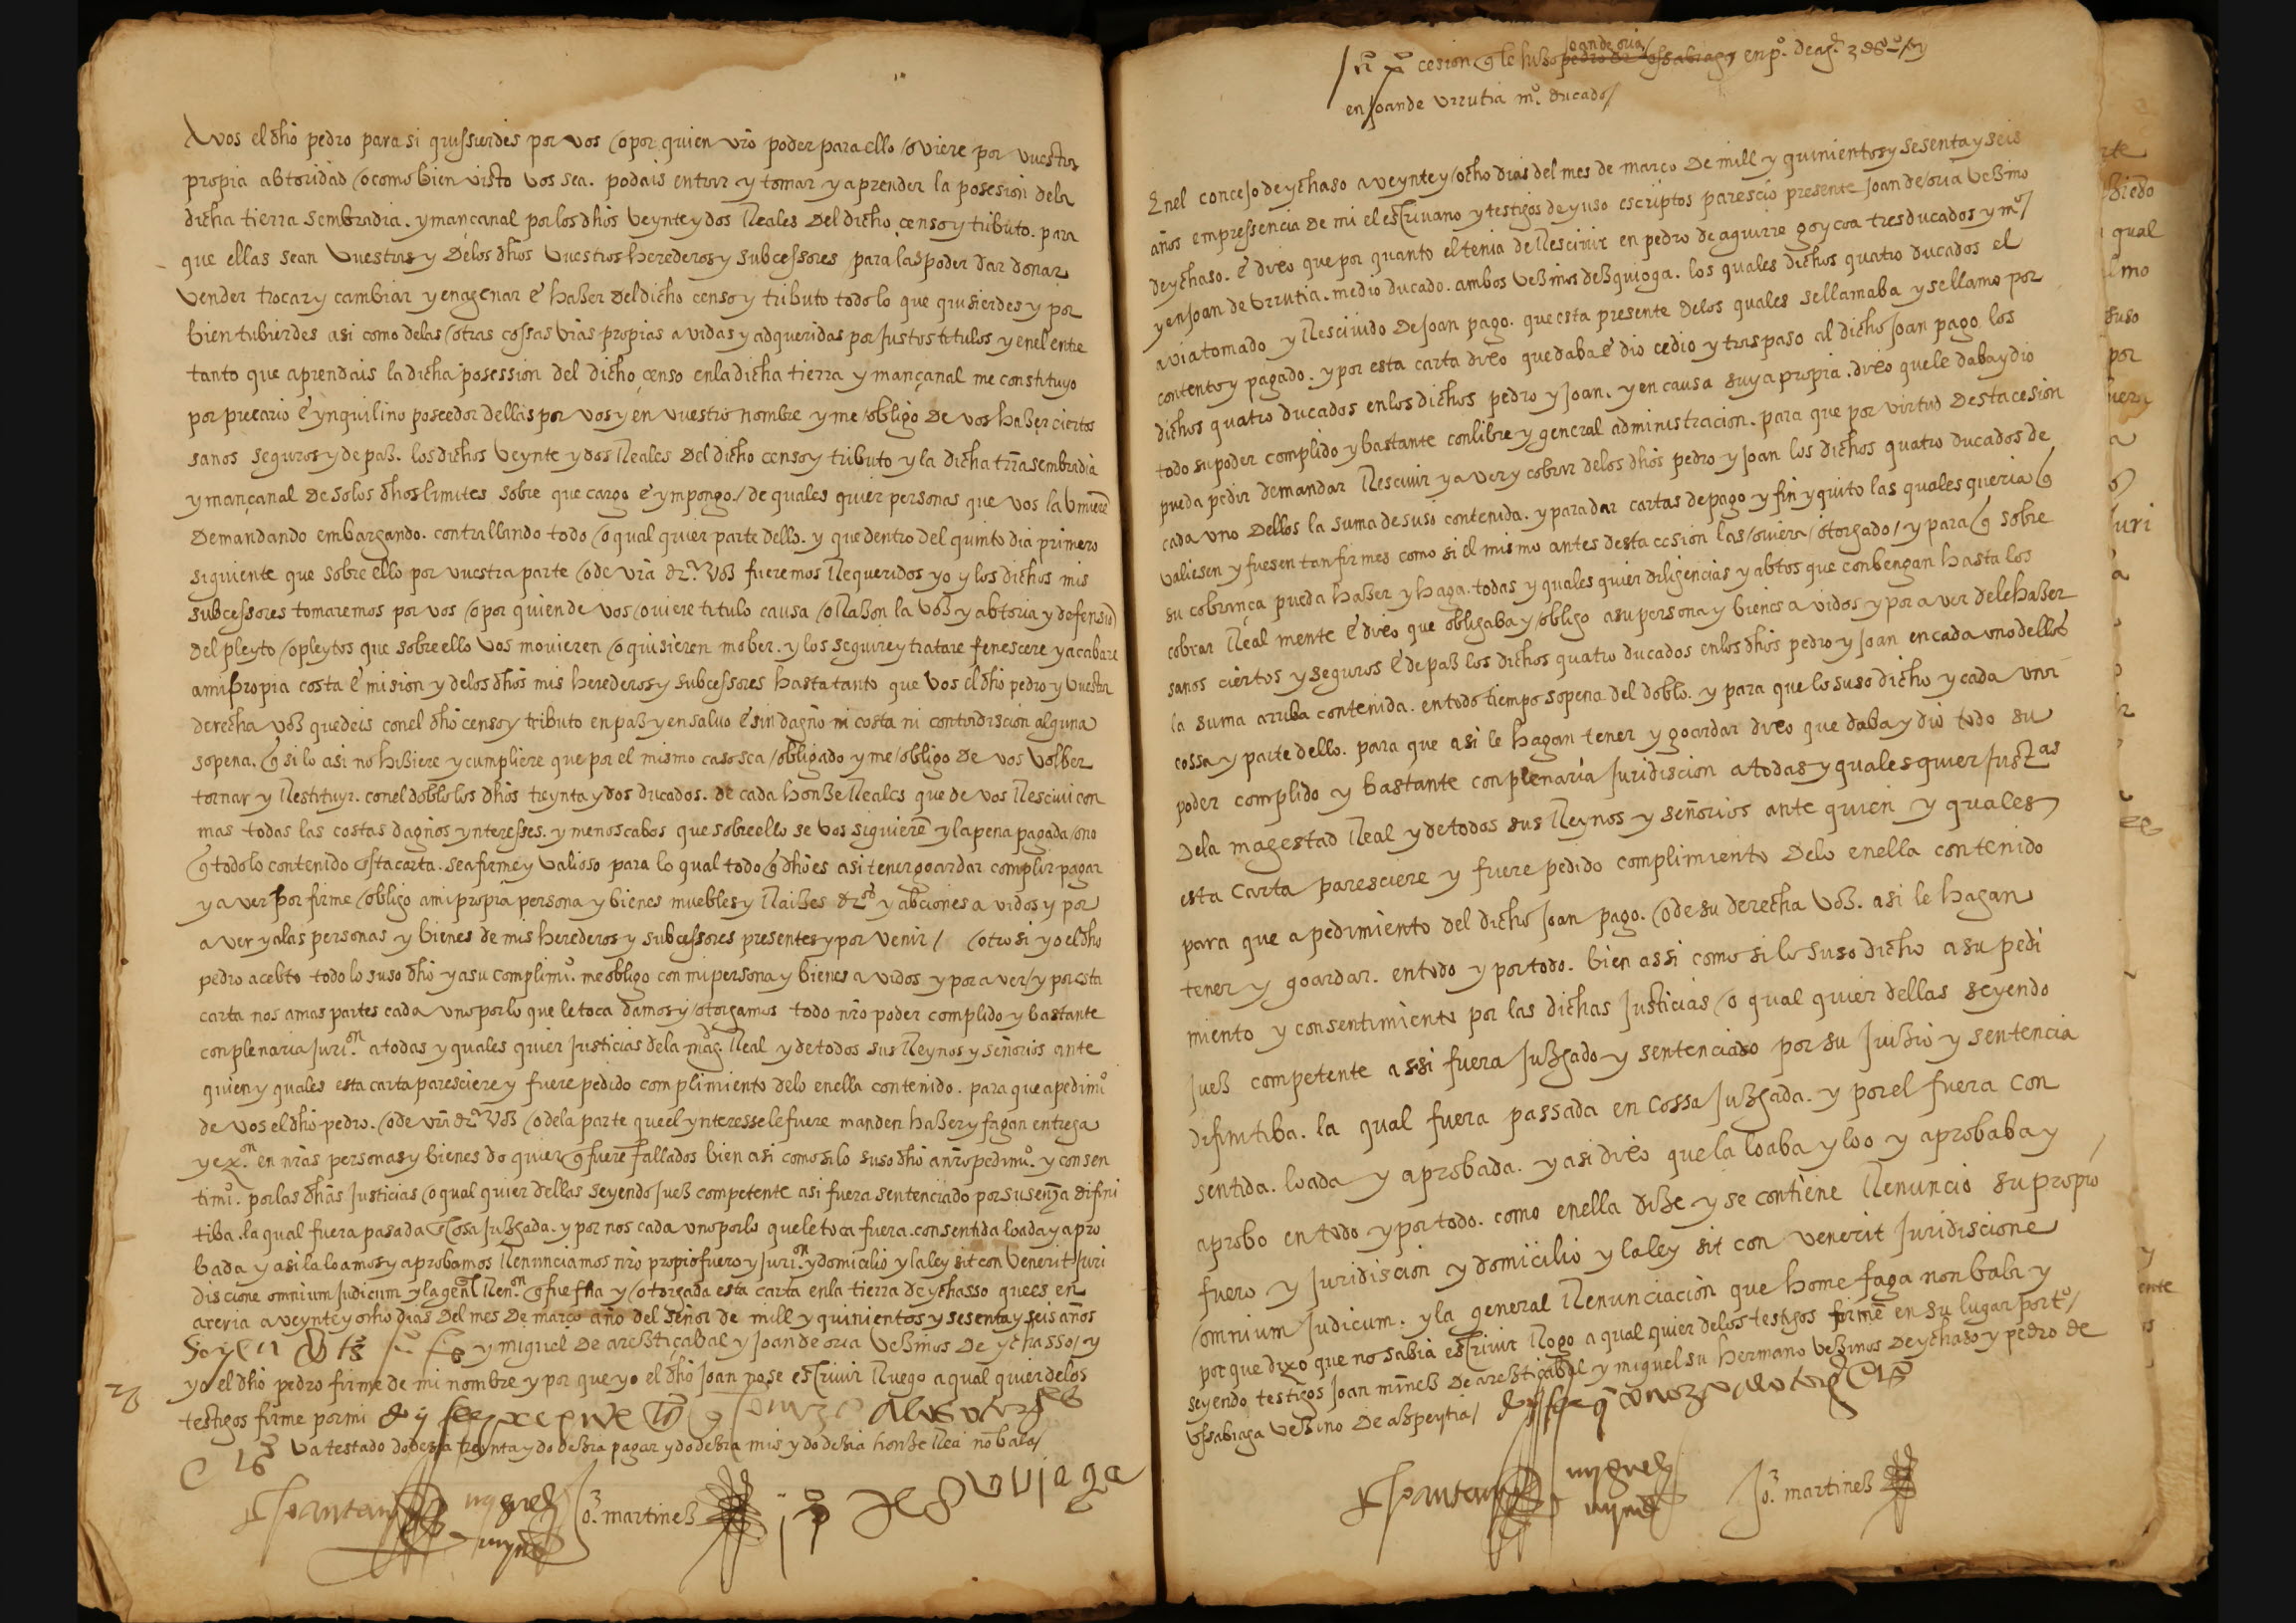 A vos el dho pedro para si quissierdes por vos o por quien vro poder para ello oviere por vuestra
propia abtoridad o como bien visto vos sea. podais entrar y tomar y aprender la posesion dela
dicha tierra sembradia. y mançanal por los dhos veynte y dos Reales del dicho censo y tributo. para
que ellas sean vuestras y delos dhos vuestros herederos y subcessores para las poder dar donar
vender trocar y cambiar y enagenar e hazer del dicho censo y tributo todo lo que quisierdes y por
bien tubierdes asi como delas otras cossas vras propias avidas y adqueridas por justos titulos y en el entre
tanto que aprendais la dicha posession del dicho censo en la dicha tierra y mançanal me constituyo
por precario e ynquilino poseedor dellas por vos y en vuestro nombre y me obligo de vos hazer ciertos
sanos seguros y de paz. los dichos veynte y dos Reales del dicho censo y tributo y la dicha trra sembradia
y mançanal de so los dhos limites sobre que cargo e ympongo / de quales quier personas que vos la vinieré
demandando embargando. contrallando todo o qual quier parte dello. y que dentro del quinto dia primero
siguiente que sobre ello por vuestra parte o de vra dra voz fueremos Requeridos yo y los dichos mis
subcessores tomaremos por vos o por quien de vos oviere titulo causa o Razon la voz y abtoria y defensió
del pleyto o pleytos que sobre ello vos movieren o quisieren mober. y los seguire y tratare fenescere y acabare
a mi propia costa e mision y delos dhos mis herederos y subcessores hasta tanto que vos el dho pedro y vuestra
derecha voz quedeis con el dho censo y tributo en paz y en salvo e sin dagño ni costa ni contradiscion alguna
so pena. q si lo asi no hiziere y cumpliere que por el mismo caso sea obligado y me obligo de vos volber
tornar y Restituyr. con el doblo los dhos treynta y dos ducados. de cada honze Reales que de vos Rescivi con
mas todas las costas dagños ynteresses. y menoscabos que sobre ello se vos siguieré y la pena pagada o no
q todo lo contenido esta carta. sea firme y valioso para lo qual todo q dho es asi tener goardar complir pagar
y aver por firme obligo a mi propia persona y bienes muebles y Raizes dros y abciones avidos y por
aver y alas personas y bienes de mis herederos y subcessores presentes y por venir / otro si yo el dho
pedro acebto todo lo suso dho y a su complimo. me obligo con mi persona y bienes avidos y por aver / y por esta
carta nos amas partes cada uno por lo que le toca damos y otorgamos todo nro poder complido y bastante
con plenaria Jurion a todas y quales quier justicias dela magd Real y de todos sus Reynos y señorios ante
quien y quales esta carta paresciere y fuere pedido complimiento delo en ella contenido. para que a pedimo
de vos el dho pedro. o de vra dra voz o dela parte que el ynteresse le fuere manden hazer y fagan entrega
y exon en nras personas y bienes do quier q fueré fallados bien asi como si lo suso dho a nro pedimo. y consen
timo. por las dhas justicias o qual quier dellas seyendo juez competente asi fuera sentenciado por su sença difini
tiba. la qual fuera pasada e cosa juzgada. y por nos cada uno por lo que le toca fuera. consentida loada y apro
bada y asi la loamos y aprobamos Renunciamos nro propio fuero y jurion y domicilio y la ley sit con venerit juri
discione omnium judicum y la genl Renon q fue fha y otorgada esta carta en la tierra de ychasso que es en
areria a veynte y ocho dias del mes de março año del señor de mill y quinientos y sesenta y seis años
y miguel de areztiçabal y joan de oria vezinos de ychasso / y
yo el dho pedro firme de mi nombre y por que yo el dho joan no se escrivir Ruego a qual quier delos
testigos firme por mi
va testado do dezia treynta y do dezia pagar y do dezia mis y do dezia honze Rea no bala /
miguel Jo. martinez
cesion q le hizo joan de oria pedro de ossabiaga en po. de agr. 3 ds.o / y
en joan de urrutia mo. ducado /
En el concejo de ychaso a veynte y ocho dias del mes de março de mill y quinientos y sesenta y seis
años em pressencia de mi el escrivano y testigos de yuso escriptos parescio presente joan de oria vezino
de ychaso. e dixo que por quanto el tenia de Rescivir en pedro de aguirre goycoa tres ducados y mo /
y en joan de urrutia. medio ducado. ambos vezinos dezquioga. los quales dichos quatro ducados el
avia tomado y Rescivido de joan pago. que esta presente delos quales se llamaba y se llamo por
contento y pagado. y por esta carta dixo que daba e dio cedio y traspaso al dicho joan pago los
dichos quatro ducados en los dichos pedro y joan. y en causa suya propia. dixo que le daba y dio
todo su poder complido y bastante con libre y general administracion. para que por virtud desta cesion
pueda pedir demandar Rescivir y aver y cobrar delos dhos pedro y joan los dichos quatro ducados de
cada uno dellos la suma de suso contenida. y para dar cartas de pago y fin y quito las quales queria q
valiesen y fuesen tan firmes como si el mismo antes desta cesion las oviera otorgado / y para q sobre
su cobrança pueda hazer y haga. todas y quales quier diligencias y abtos que conbengan hasta los
cobrar Real mente e dixo que obligaba y obligo a su persona y bienes avidos y por aver dele hazer
sanos ciertos y seguros e de paz los dichos quatro ducados en los dhos pedro y joan en cada uno dellos
la suma arriba contenida. en todo tiempo so pena del doblo. y para que lo suso dicho y cada una
cossa y parte dello. para que asi le hagan tener y goardar dixo que daba y dio todo su
poder complido y bastante con plenaria juridiscion a todas y quales quier justas
dela magestad Real y de todos sus Reynos y señorios ante quien y quales
esta carta paresciere y fuere pedido complimiento delo en ella contenido
para que a pedimiento del dicho joan pago. o de su derecha voz. asi le hagan
tener y goardar. en todo y por todo. bien assi como si lo suso dicho a su pedi
miento y consentimiento por las dichas justicias o qual quier dellas seyendo
juez competente assi fuera juzgado y sentenciado por su juizio y sentencia
difinitiba. la qual fuera passada en cossa juzgada. y por el fuera con
sentida. loada y aprobada. y asi dixo que la loaba y loo y aprobaba y
aprobo en todo y por todo. como en ella dize y se contiene Renuncio su propio
fuero y juridiscion y domicilio y la ley sit con venerit juridiscione
omnium judicum. y la general Renunciacion que home faga non bala y
por que dixo que no sabia escrivir Rogo a qual quier delos testigos firmé en su lugar por to /
seyendo testigos joan mrnez de areztiçabal y miguel su hermano vezinos de ychaso y pedro de
ossabiaga vezino de azpeytia /
miguel Jo. martinez